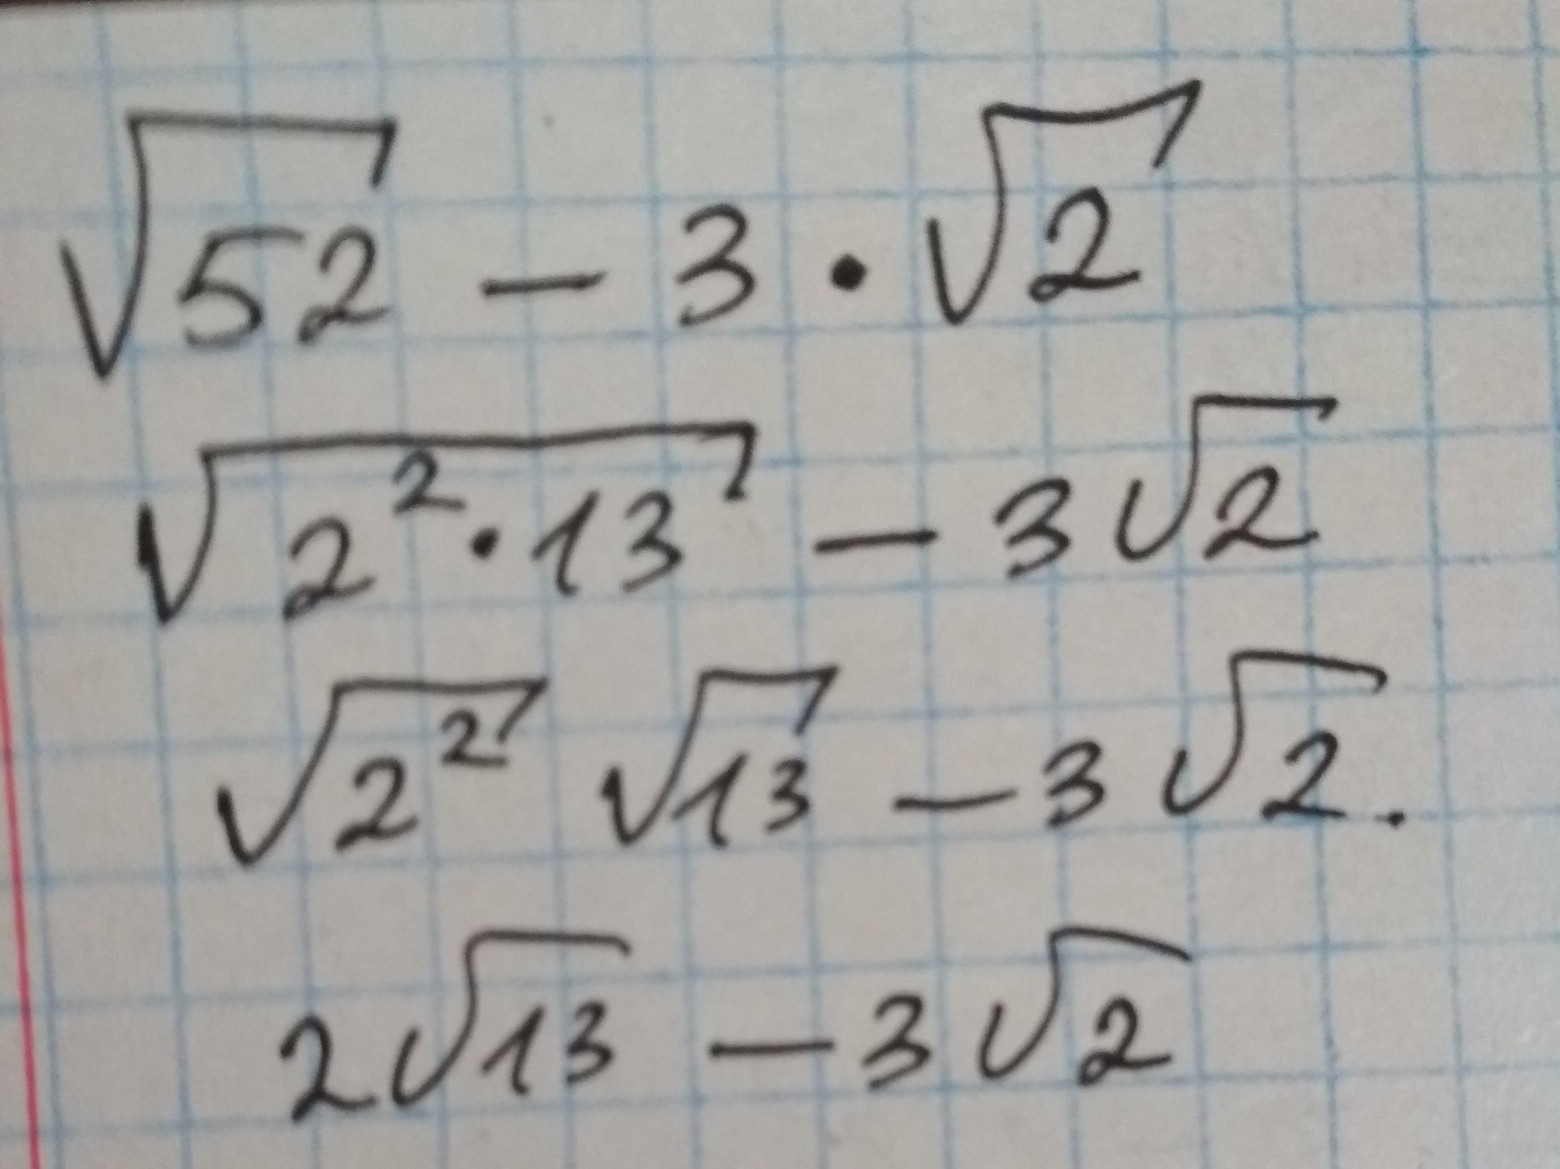 √52 − 3 · √2
√2² · 13 − 3√2
√2² √13 − 3√2.
2√13 − 3√2